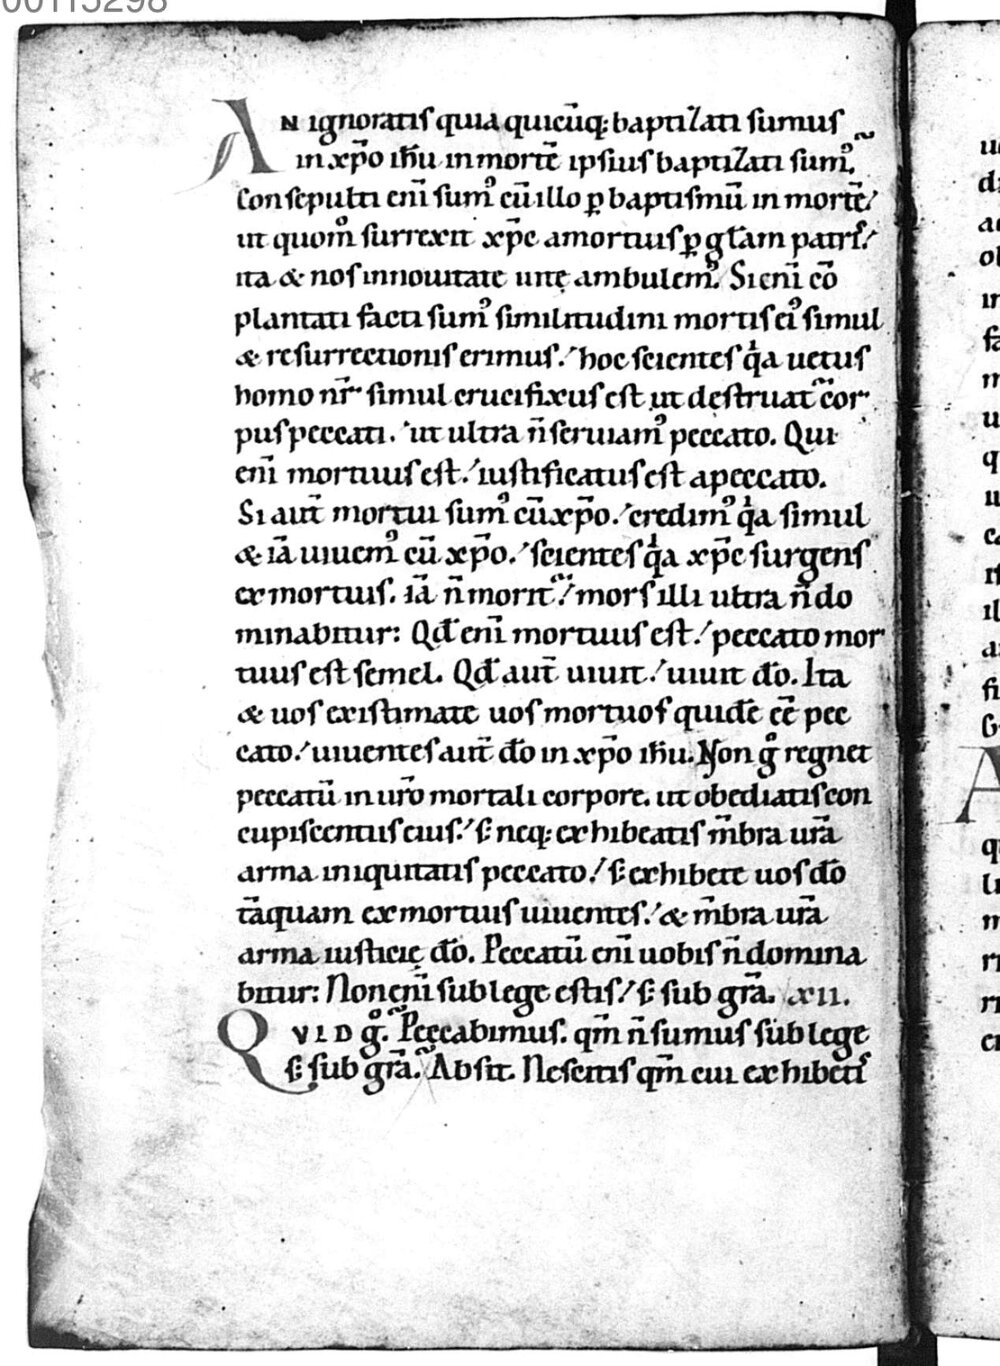 00115298
AN ignoratis quia quicūq; baptizati sumus
in xp̄o ih̄u in mortē ipsius baptizati sumꝰ.
Consepulti enī sumꝰ cū illo ꝑ baptismū in mortē
ut quom̊ surrexit xp̄c a mortuis ꝑ gl̄am patrꝭ.
ita & nos in nouitate uitę ambulemꝰ. Si enī cō
plantati facti sumꝰ similitudini mortis eiꝰ simul
& resurrectionis erimus. hoc scientes qͥa uetus
homo nr̄ simul crucifixus est ut destruat̃ cor
pus peccati. ut ultra n̄ seruiamꝰ peccato. Qui
enī mortuus est. iustificatus est a peccato.
Si aut̄ mortui sumꝰ cū xp̄o. credimꝰ qͥa simul
& iā uiuemꝰ cū xp̄o. scientes qͥa xp̄c surgens
ex mortuis. iā n̄ morit̃. mors illi ultra n̄ do
minabitur: Qđ enī mortuus est. peccato mor
tuus est semel. Qđ aut̄ uiuit. uiuit dō. Ita
& uos existimate uos mortuos quidē eē̄ pec
cato. uiuentes aut̄ dō in xp̄o ih̄u. Non gͦ regnet
peccatū in ur̄o mortali corpore. ut obediatis con
cupiscentiis eius. s; neq; exhibeatis m̄bra ur̄a
arma iniquitatis peccato. s; exhibete uos dō
tāquam ex mortuis uiuentes. & m̄bra ur̄a
arma iusticię dō. Peccatū enī uobis n̄ domina
bitur: Non enī sub lege estis. s; sub gr̄a. XII.
QVID gͦ. Peccabimus. qm̄ n̄ sumus sub lege
s; sub gr̄a. Absit. Nescitis qm̄ cui exhibetꝭ